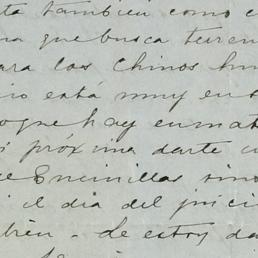 ta también como c
na que busca terren
ara los Chinos hu
io está muy en t
oque hay en mat
próxima darte c
e Encinillas sino
i el dia del juici
bién - de estoy da